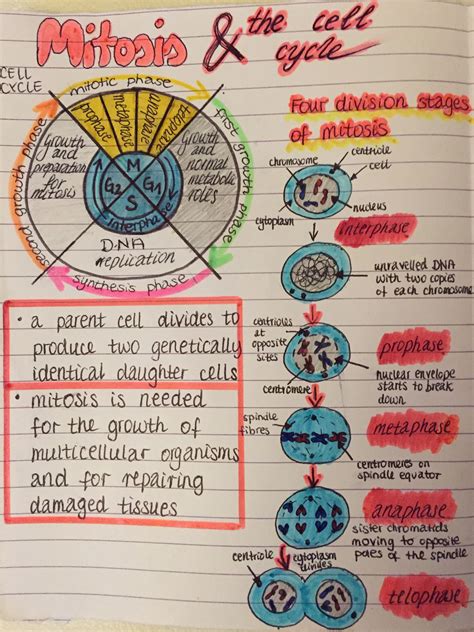 Mitosis & the cell
cycle
CELL
CYCLE
mitotic phase
prophase
metaphase
anaphase
telophase
second growth phase
first growth phase
Growth
and
preparation
for
mitosis
Growth
and
normal
metabolic
roles
M
G2
G1
S
interphase
DNA
replication
synthesis phase
• a parent cell divides to
produce two genetically
identical daughter cells
• mitosis is needed
for the growth of
multicellular organisms
and for repairing
damaged tissues
Four division stages
of mitosis
chromosome
centriole
cell
nucleus
cytoplasm
interphase
unravelled DNA
with two copies
of each chromosome
centrioles
at
opposite
sites
prophase
nuclear envelope
starts to break
down
centromere
spindle
fibres
metaphase
centromeres on
spindle equator
anaphase
sister chromatids
moving to opposite
poles of the spindle
centriole
cytoplasm
divides
telophase